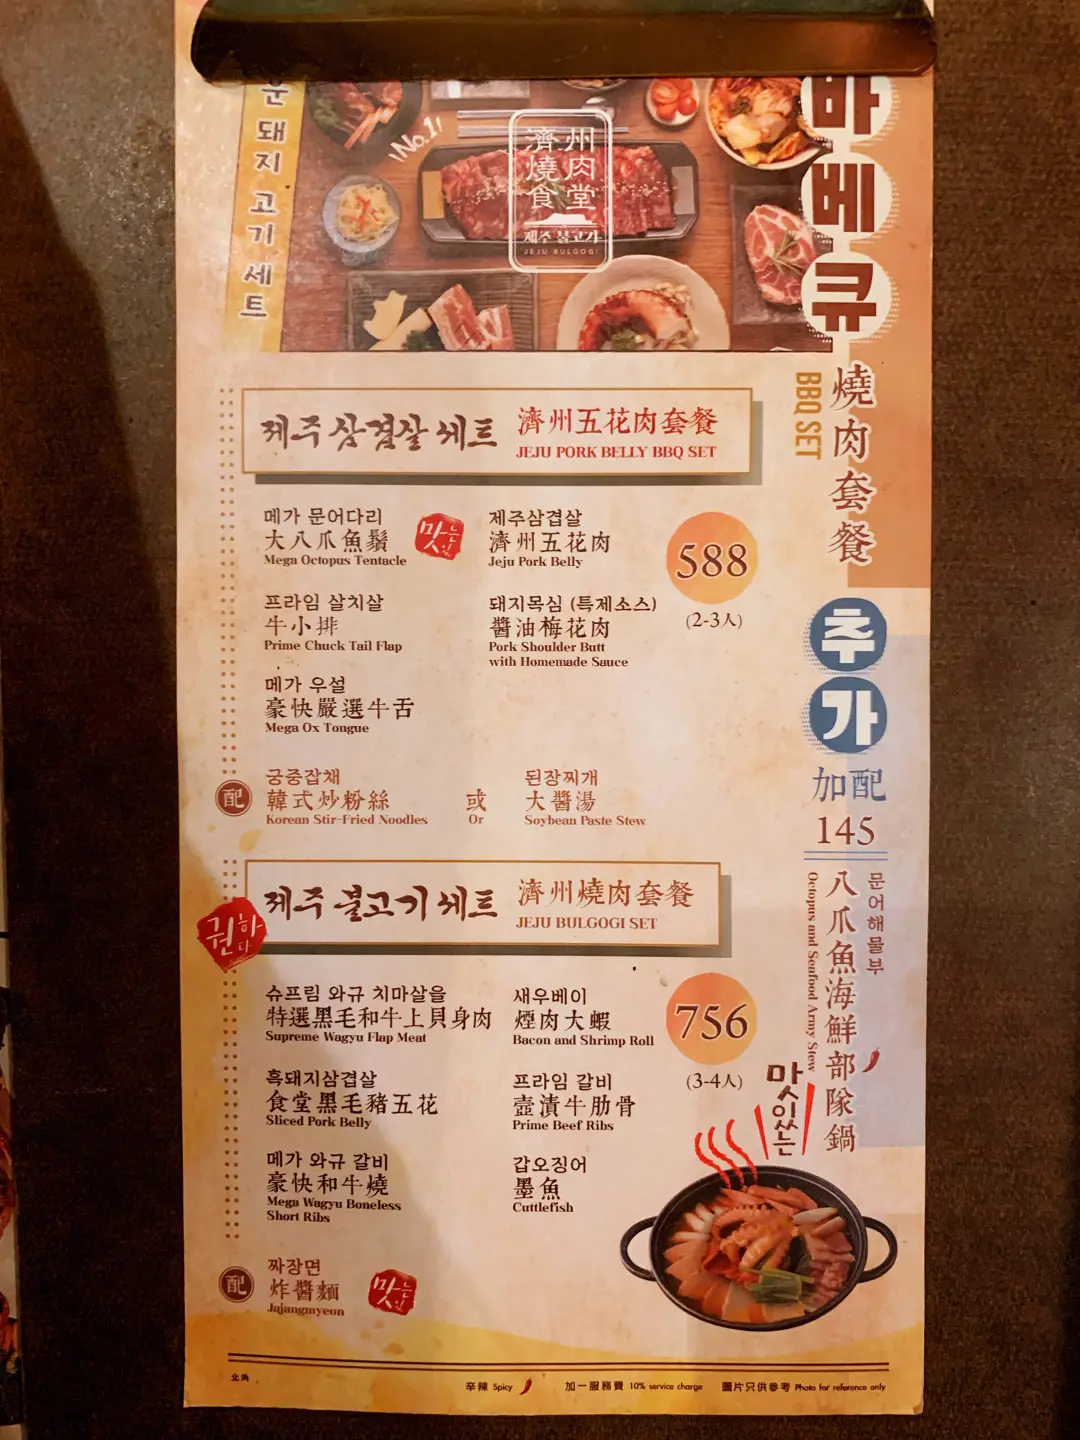 돼지고기세트
No.1
濟州
燒肉
食堂
제주 불고기
JEJU BULGOGI
바베큐
燒肉套餐
BBQ SET
제주 삼겹살 세트
濟州五花肉套餐
JEJU PORK BELLY BBQ SET
메가 문어다리
大八爪魚鬚
Mega Octopus Tentacle
맛있는
제주삼겹살
濟州五花肉
Jeju Pork Belly
588
(2-3人)
프라임 살치살
牛小排
Prime Chuck Tail Flap
돼지목심 (특제소스)
醬油梅花肉
Pork Shoulder Butt
with Homemade Sauce
메가 우설
豪快嚴選牛舌
Mega Ox Tongue
配
궁중잡채
韓式炒粉絲
Korean Stir-Fried Noodles
或
Or
된장찌개
大醬湯
Soybean Paste Stew
권하다
제주 불고기 세트
濟州燒肉套餐
JEJU BULGOGI SET
슈프림 와규 치마살을
特選黑毛和牛上貝身肉
Supreme Wagyu Flap Meat
새우베이
煙肉大蝦
Bacon and Shrimp Roll
756
(3-4人)
흑돼지삼겹살
食堂黑毛豬五花
Sliced Pork Belly
프라임 갈비
壼漬牛肋骨
Prime Beef Ribs
메가 와규 갈비
豪快和牛燒
Mega Wagyu Boneless
Short Ribs
갑오징어
墨魚
Cuttlefish
配
짜장면
炸醬麵
Jajangmyeon
맛있는
추가
加配
145
문어해물부
八爪魚海鮮部隊鍋
Octopus and Seafood Army Stew
맛있는
北角
辛辣 Spicy
加一服務費 10% service charge
圖片只供參考 Photo for reference only